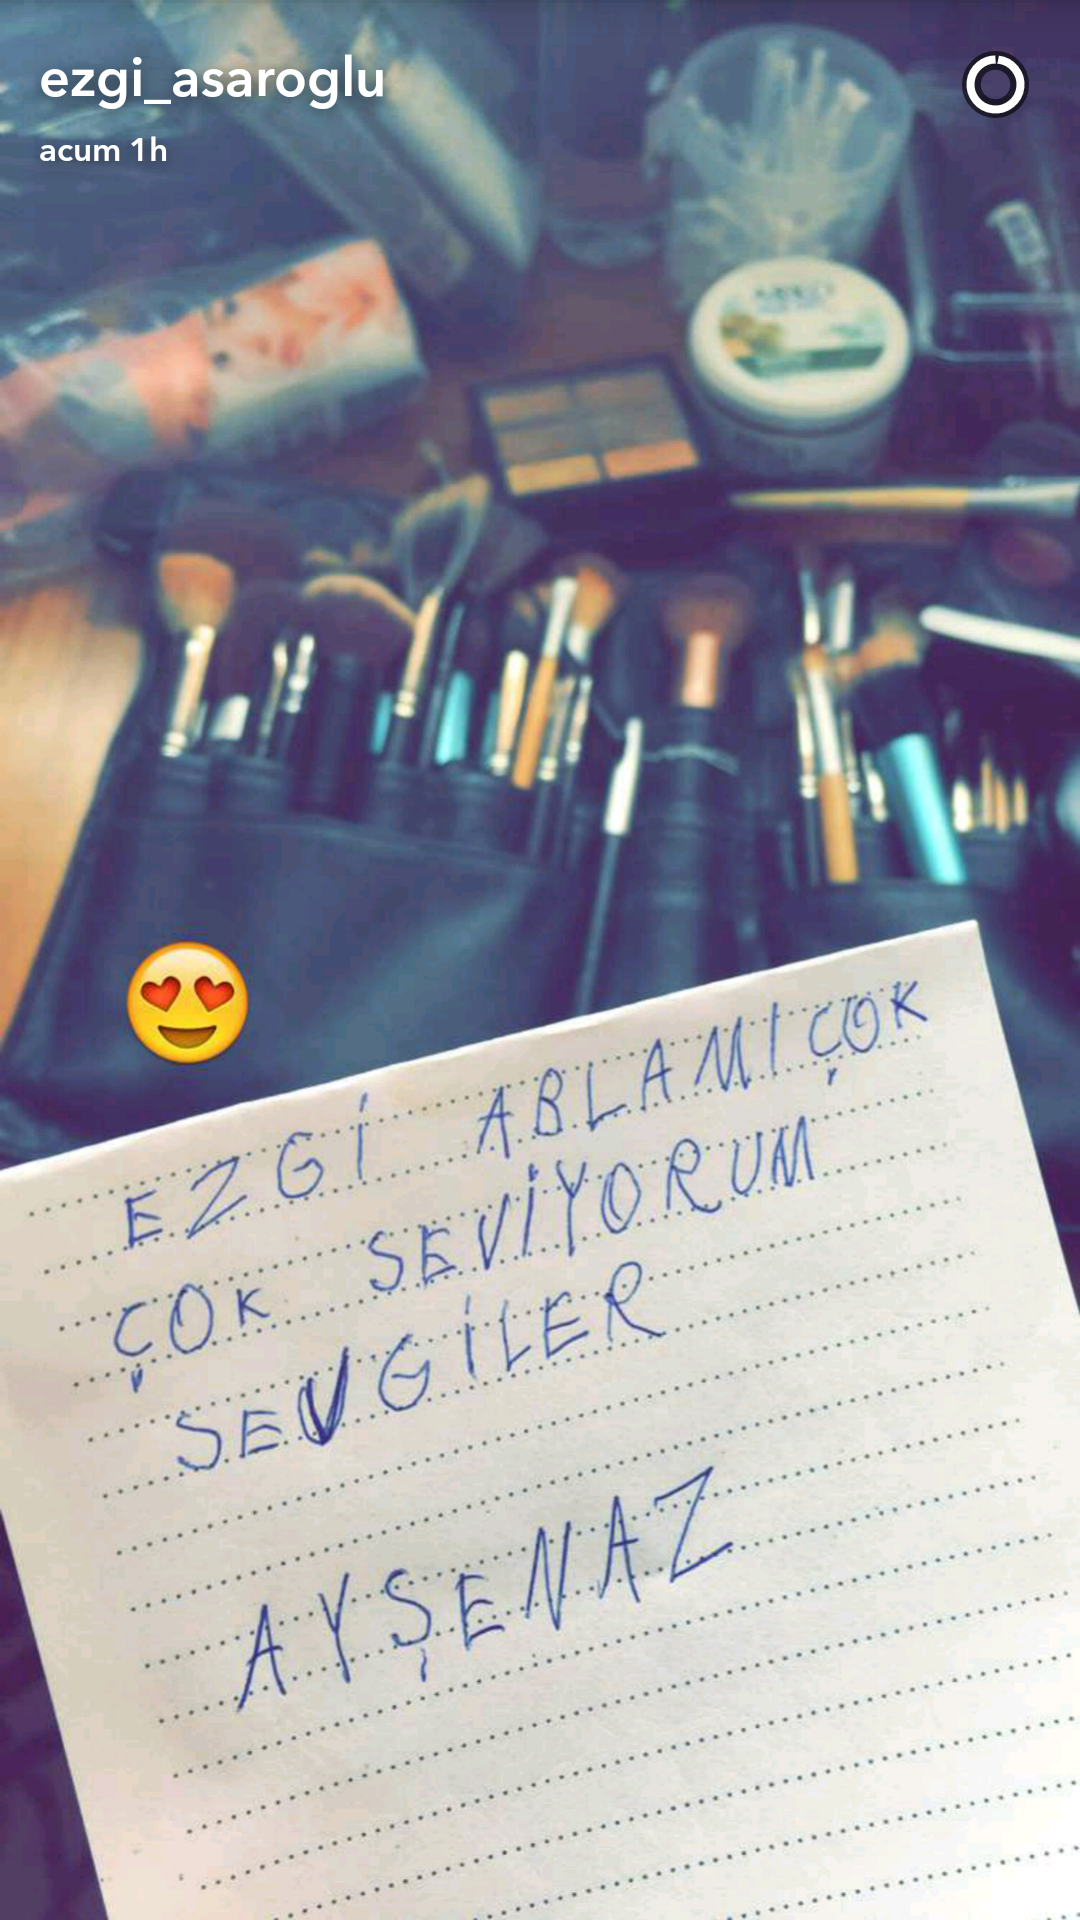 ezgi_asaroglu
acum 1h
EZGİ ABLAMI ÇOK
ÇOK SEVİYORUM
SEVGİLER
AYŞENAZ